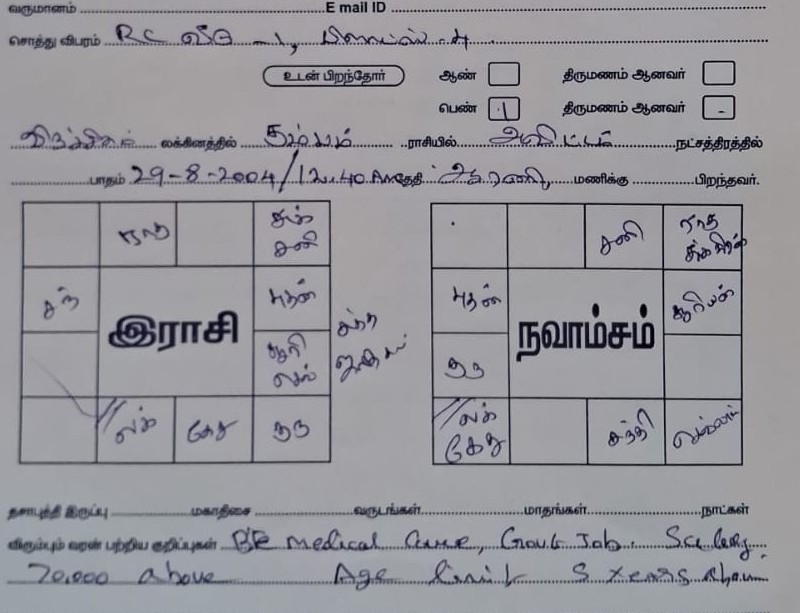 வருமானம் E mail ID
சொத்து விபரம் RC வீடு -1, பிளாட்ஸ் -4
உடன் பிறந்தோர் ஆண் திருமணம் ஆனவர்
பெண் 1 திருமணம் ஆனவர் -
லக்கினத்தில் கும்பம் ராசியில் அவிட்டம் நட்சத்திரத்தில்
பாதம் 29-8-2004/12.40 Am தேதி ஆரணி, மணிக்கு பிறந்தவர்.
ராகு சுக் சனி
சந் புதன்
இராசி
சூரி செவ்
// லக் கேது குரு
சனி ராகு சுக்கிரன்
புதன் சூரியன்
நவாம்சம்
குரு
// லக் கேது சந்தி செவ்வாய்
தசாபுத்தி இருப்பு மகாதிசை வருடங்கள் மாதங்கள் நாட்கள்
விரும்பும் வரன் பற்றிய குறிப்புகள் BE Medical Govt Job.
70,000 above Age limit 5 years